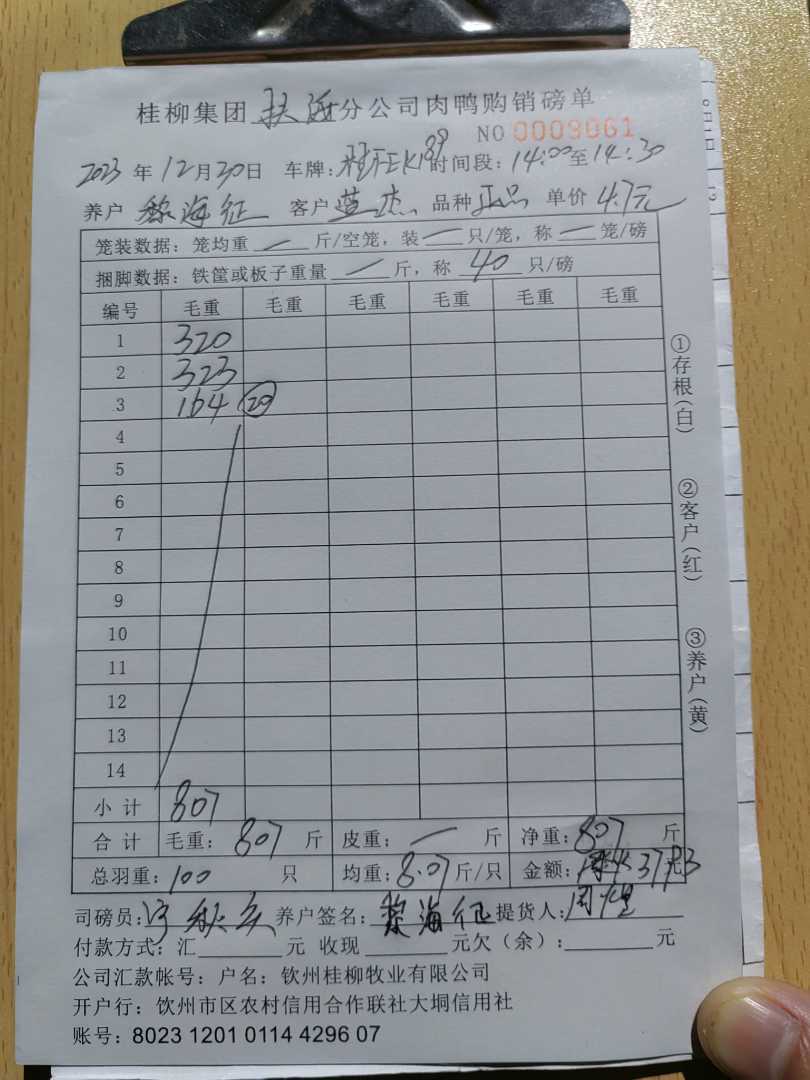 桂柳集团 扶海 分公司肉鸭购销磅单
NO 0009061
2023 年 12 月 20 日 车牌: 时间段: 14:00 至 14:30
养户 黎海征 客户 蓝杰 品种 正品 单价 4.7元
笼装数据: 笼均重 — 斤/空笼, 装 — 只/笼, 称 — 笼/磅
捆脚数据: 铁筐或板子重量 — 斤, 称 40 只/磅
编号 毛重 毛重 毛重 毛重 毛重 毛重
1 320
2 323
3 164 20
4
5
6
7
8
9
10
11
12
13
14
小计 807
合计 毛重: 807 斤 皮重: — 斤 净重: 807 斤
总羽重: 100 只 均重: 8.07 斤/只 金额: 元
司磅员: 养户签名: 黎海征 提货人:
付款方式: 汇 元 收现 元欠(余): 元
公司汇款帐号: 户名: 钦州桂柳牧业有限公司
开户行: 钦州市区农村信用合作联社大垌信用社
账号: 8023 1201 0114 4296 07
①存根(白)
②客户(红)
③养户(黄)